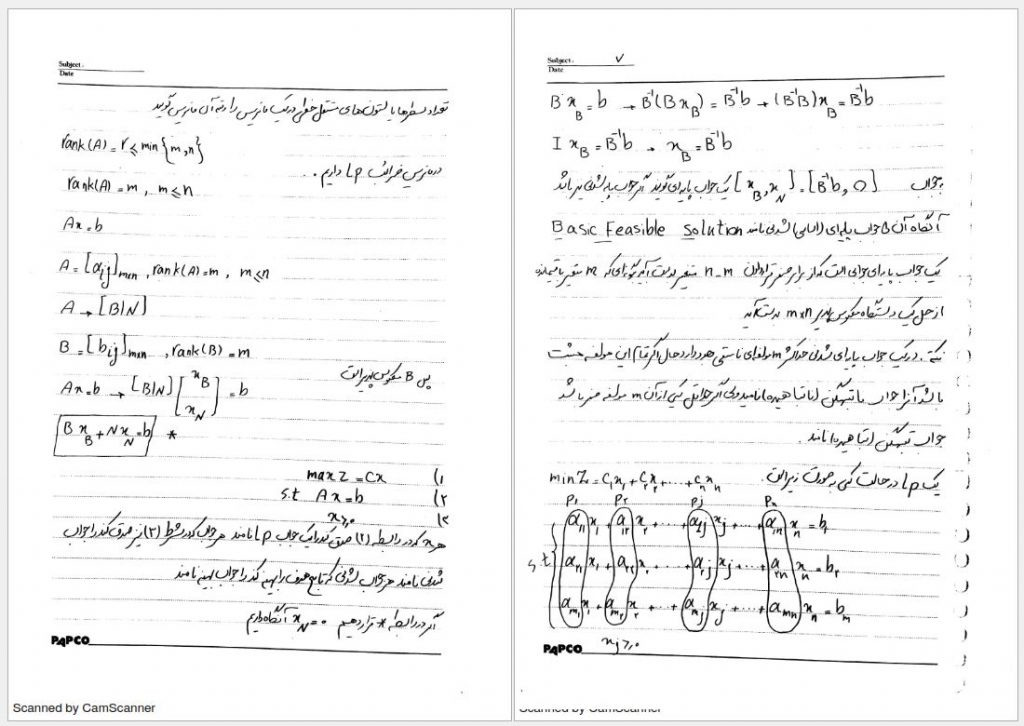 Subject.
Date
تعداد سطرها یا ستون‌های مستقل خطی در یک ماتریس را رتبه آن ماتریس گویند
rank(A) = r ≤ min{m,n}
در ماتریس ضرائب Lp داریم.
rank(A) = m , m ≤ n
Ax = b
A = [aij]m×n , rank(A) = m , m ≤ n
A → [B|N]
B = [bij]m×m , rank(B) = m
پس B معکوس پذیر است
Ax = b → [B|N] [xB xN] = b
BxB + NxN = b *
max Z = Cx (۱
s.t Ax = b (۲
x ≥ 0 (۳
هر x که در رابطه (۲) صدق کند را یک جواب Lp نامند هر جواب که در شرط (۳) نیز صدق کند را جواب
شدنی نامند هر جواب شدنی که تابع هدف را بهینه کند را جواب بهینه نامند
اگر در رابطه * قرار دهیم xN = 0 آنگاه داریم
PAPCO
Scanned by CamScanner
Subject. ۷
Date
BxB = b → B⁻¹(BxB) = B⁻¹b → (B⁻¹B)xB = B⁻¹b
IxB = B⁻¹b → xB = B⁻¹b
به جواب [xB, xN] = [B⁻¹b, 0] یک جواب پایه‌ای گویند اگر جواب شدنی نیز باشد
آنگاه آن جواب پایه‌ای (اساسی) شدنی نامند Basic Feasible Solution
یک جواب پایه‌ای جوابی است که از برابر صفر قرار دادن n-m متغیر بدست آید به گونه‌ای که m متغیر باقیمانده
از حل یک دستگاه معکوس پذیر m×m بدست آید
نکته. در یک جواب پایه‌ای شدنی حداکثر m مولفه‌ی نامنفی وجود دارد حال اگر تمام این مولفه مثبت
باشد آنرا جواب ناتبهگن (ناتباهیده) نامید ولی اگر حداقل یکی از آن m مولفه صفر باشد
جواب تبهگن (تباهیده) نامند.
یک Lp در حالت کلی به صورت زیر است
min Z = c₁x₁ + c₂x₂ + ... + cnxn
P₁ P₂ Pj Pn
a₁₁x₁ + a₁₂x₂ + ... + a₁jxj + ... + a₁nxn = b₁
s.t a₂₁x₁ + a₂₂x₂ + ... + a₂jxj + ... + a₂nxn = b₂
am₁x₁ + am₂x₂ + ... + amjxj + ... + amnxn = bm
xj ≥ 0
PAPCO
Scanned by CamScanner